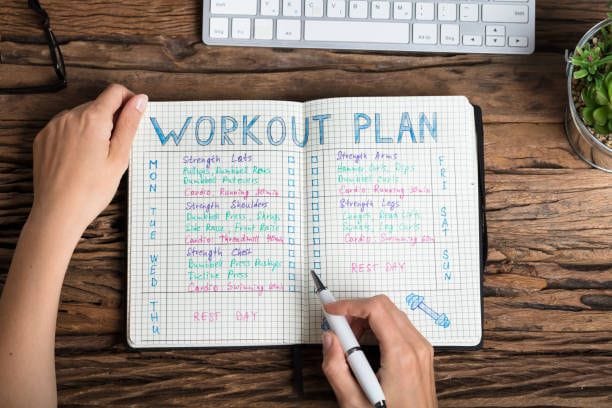 WORKOUT PLAN
MON
Strength Lats
Pullups, Dumbbell Rows
Dumbbell
Cardio: Running 30min
TUE
Strength Shoulders
Dumbbell Press, Shrugs
Side Raise, Front Raise
Cardio: 
WED
Strength Chest
Dumbbell Press Pushups
Incline Press
Cardio: Swimming 60min
THU
REST DAY
FRI
Strength Arms
Hammer Curls, Dips
Dumbbell Curls
Cardio: Running 30min
SAT
Strength Legs
Lunges, Dead Lifts
Squats, Leg Curls
Cardio: Swimming 60min
SUN
REST DAY